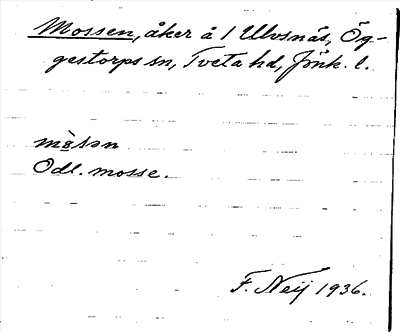 Mossen, åker å 1 Ulvsnäs, Ög-
gestorps sn, Tveta hd, Jönk. l.
mɔ̀sən
Odl. mosse.
F. Neij 1936.